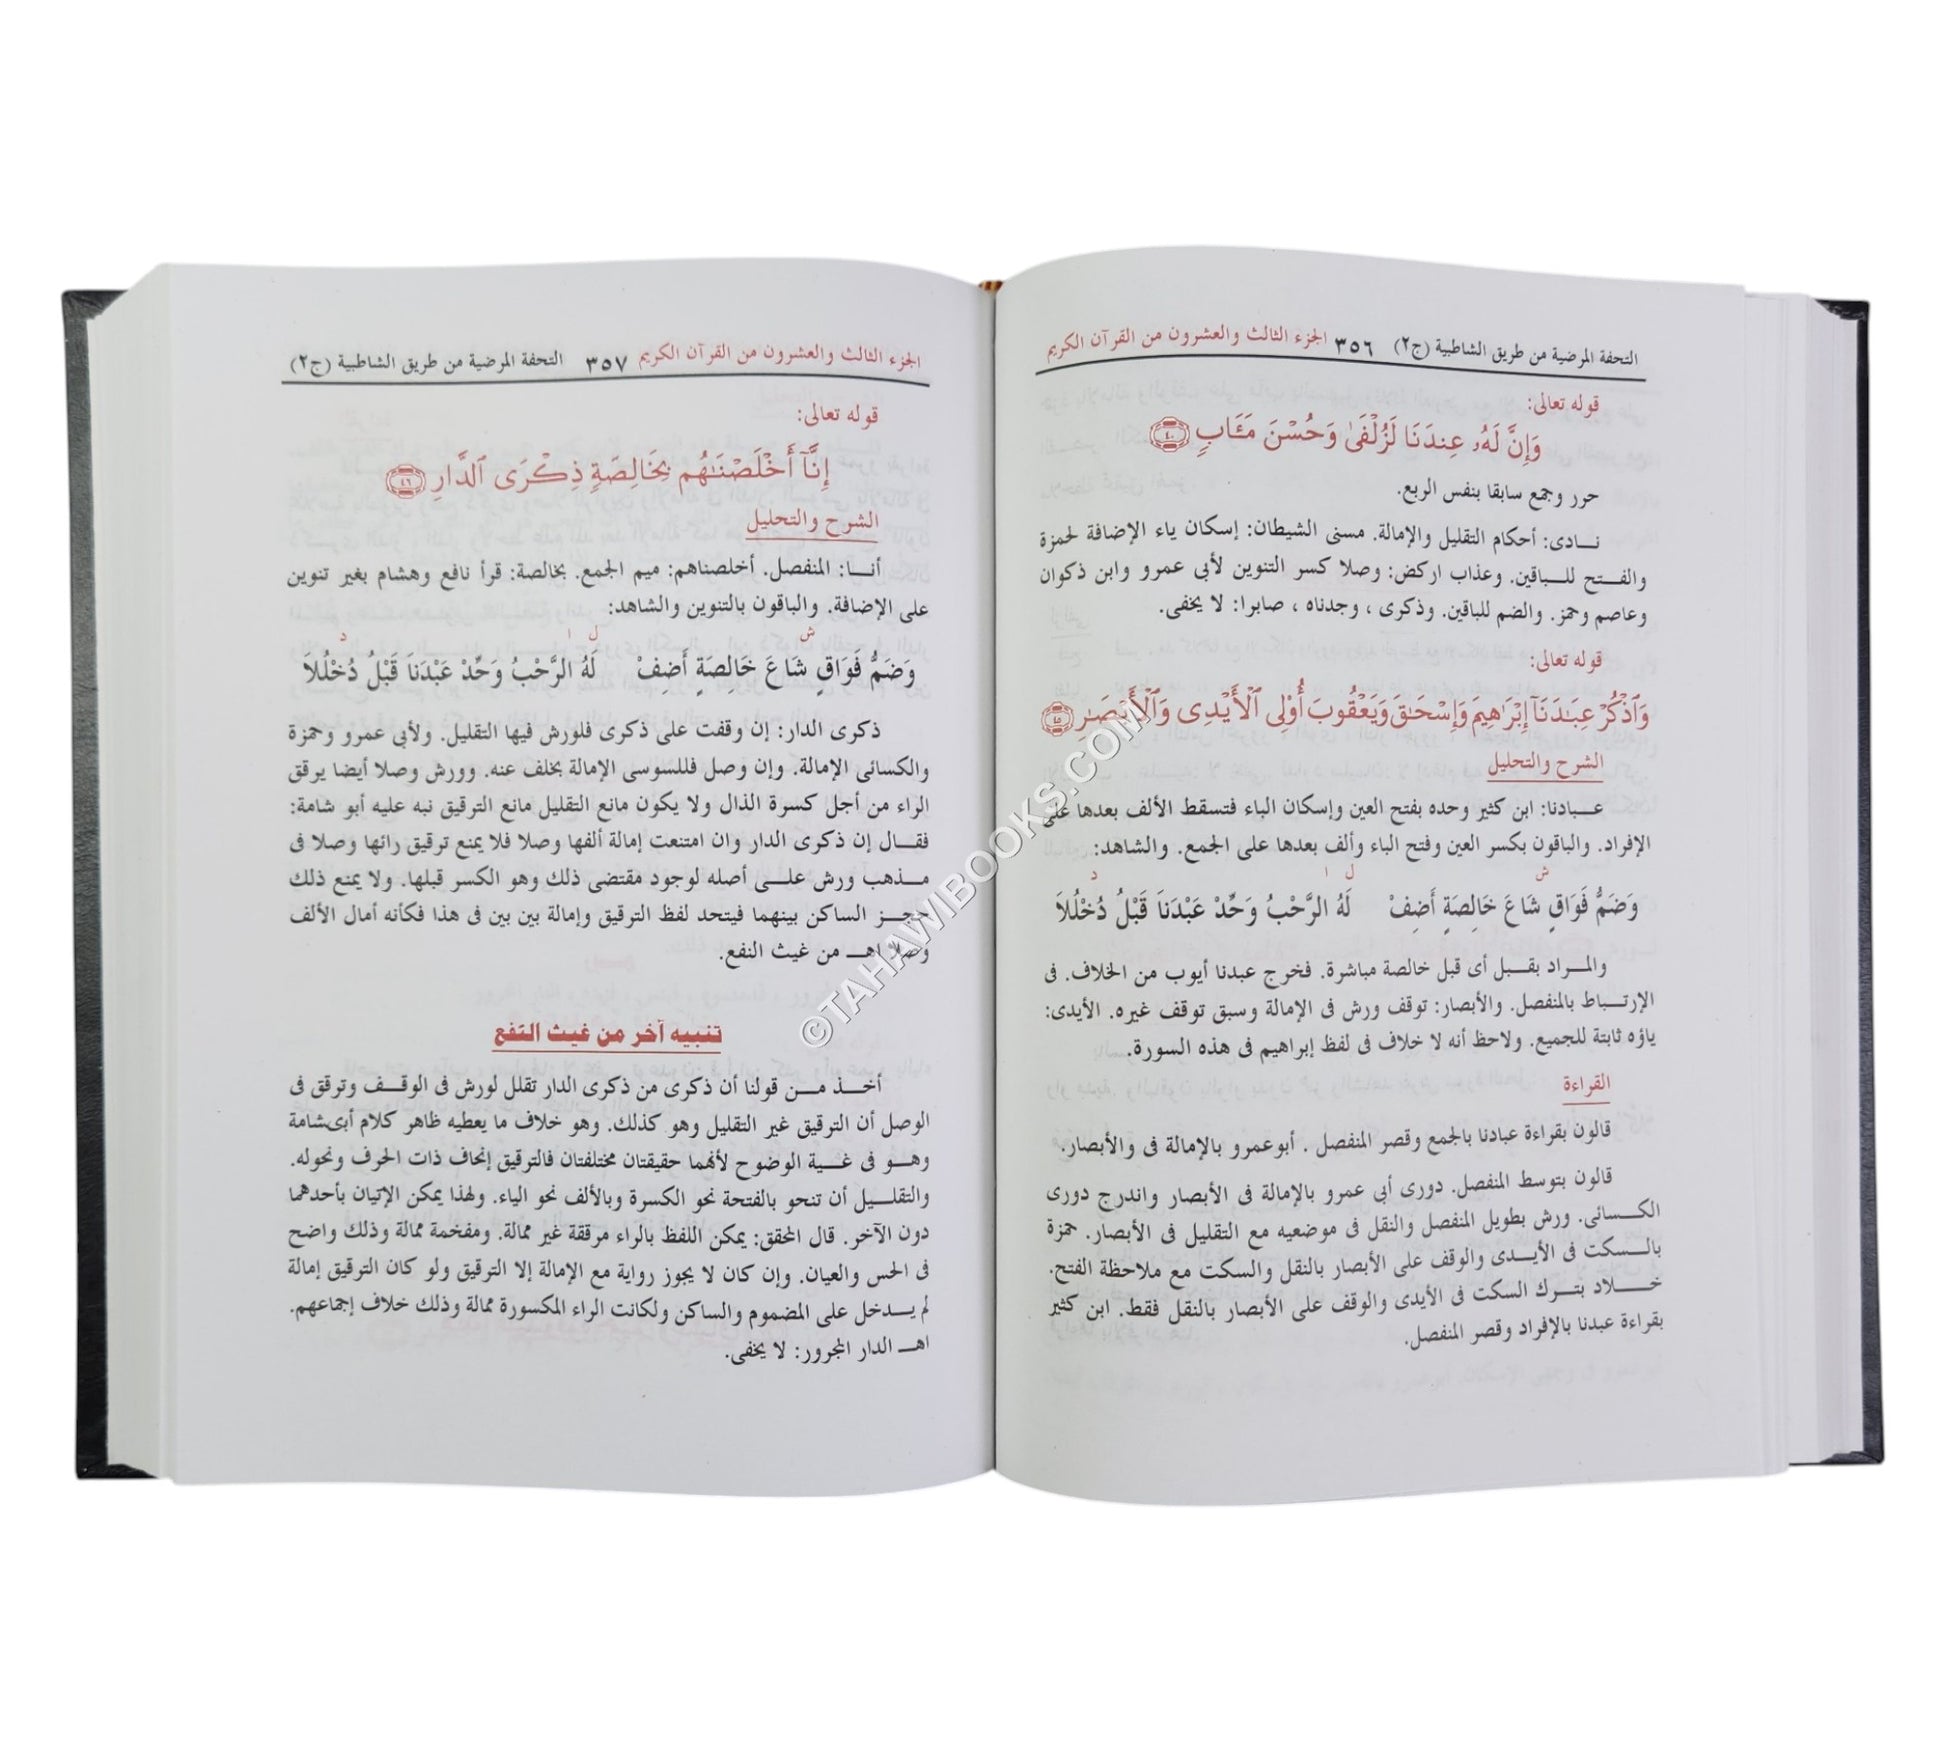 التحفة المرضية من طريق الشاطبية (ج٢) ٣٥٦ الجزء الثالث والعشرون من القرآن الكريم
قوله تعالى:
وَإِنَّ لَهُۥ عِندَنَا لَزُلْفَىٰ وَحُسْنَ مَـَٔابٍ ٤٠
حرر وجمع سابقا بنفس الربع.
نــادى: أحكام التقليل والإمالة. مسنى الشيطان: إسكان ياء الإضافة لحمزة
والفــتح للــباقين. وعذاب اركض: وصلا كسر التنوين لأبى عمرو وابن ذكوان
وعاصم وحمز. والضم للباقين. وذكرى ، وجدناه ، صابرا: لا يخفى.
قوله تعالى:
وَٱذْكُرْ عِبَـٰدَنَآ إِبْرَٰهِيمَ وَإِسْحَـٰقَ وَيَعْقُوبَ أُو۟لِى ٱلْأَيْدِى وَٱلْأَبْصَـٰرِ ٤٥
الشرح والتحليل
عــبادنا: ابن كثير وحده بفتح العين وإسكان الباء فتسقط الألف بعدها على
الإفراد. والباقون بكسر العين وفتح الباء وألف بعدها على الجمع. والشاهد:
ش ل ا د
وَضَمُّ فَوَاقٍ شَاعَ خَالِصَةٍ أَضِفْ لَهُ الرَّحْبُ وَحِّدْ عَبْدَنَا قَبْلُ دُخْلُلَا
والمــراد بقــبل أى قبل خالصة مباشرة. فخرج عبدنا أيوب من الخلاف. فى
الإرتــباط بالمنفصل. والأبصار: توقف ورش فى الإمالة وسبق توقف غيره. الأيدى:
ياؤه ثابتة للجميع. ولاحظ أنه لا خلاف فى لفظ إبراهيم فى هذه السورة.
القراءة
قالون بقراءة عبادنا بالجمع وقصر المنفصل . أبوعمرو بالإمالة فى والأبصار.
قالون بتوسط المنفصل. دورى أبي عمرو بالإمالة فى الأبصار واندرج دورى
الكــسائى. ورش بطويل المنفصل والنقل فى موضعيه مع التقليل فى الأبصار. حمزة
بالــسكت فى الأيــدى والوقف على الأبصار بالنقل والسكت مع ملاحظة الفتح.
خــلاد بتــرك السكت فى الأيدى والوقف على الأبصار بالنقل فقط. ابن كثير
بقراءة عبدنا بالإفراد وقصر المنفصل.
الجزء الثالث والعشرون من القرآن الكريم ٣٥٧ التحفة المرضية من طريق الشاطبية (ج٢)
قوله تعالى:
إِنَّآ أَخْلَصْنَـٰهُم بِخَالِصَةٍ ذِكْرَى ٱلدَّارِ ٤٦
الشرح والتحليل
أنــا: المنفصل. أخلصناهم: ميم الجمع. بخالصة: قرأ نافع وهشام بغير تنوين
على الإضافة. والباقون بالتنوين والشاهد:
ش ل ا د
وَضَمُّ فَوَاقٍ شَاعَ خَالِصَةٍ أَضِفْ لَهُ الرَّحْبُ وَحِّدْ عَبْدَنَا قَبْلُ دُخْلُلَا
ذكرى الدار: إن وقفت على ذكرى فلورش فيها التقليل. ولأبى عمرو وحمزة
والكسائى الإمالة. وإن وصل فللسوسى الإمالة بخلف عنه. وورش وصلا أيضا يرقق
الراء من أجل كسرة الذال ولا يكون مانع التقليل مانع الترقيق نبه عليه أبو شامة:
فقــال إن ذكرى الدار وان امتنعت إمالة ألفها وصلا فلا يمنع ترقيق رائها وصلا فى
مــذهب ورش علــى أصله لوجود مقتضى ذلك وهو الكسر قبلها. ولا يمنع ذلك
حجــز الساكن بينهما فيتحد لفظ الترقيق وإمالة بين بين فى هذا فكأنه أمال الألف
وصلا اهــ من غيث النفع.
تنبيه آخر من غيث النفع
أخــذ مــن قولنا أن ذكرى من ذكرى الدار تقلل لورش فى الوقــف وترقق فى
الوصل أن الترقيق غير التقليل وهو كذلك. وهو خلاف ما يعطيه ظاهر كلام أبىشامة
وهــو فى غــية الوضوح لأنهما حقيقتان مختلفتان فالترقيق إنحاف ذات الحرف ونحوله.
والتقلــيل أن تنحو بالفتحة نحو الكسرة وبالألف نحو الياء. ولهذا يمكن الإتيان بأحدهما
دون الآخر. قال المحقق: يمكن اللفظ بالراء مرققة غير ممالة. ومفخمة ممالة وذلك واضح
فى الحس والعيان. وإن كان لا يجوز رواية مع الإمالة إلا الترقيق ولو كان الترقيق إمالة
لم يــدخل على المضموم والساكن ولكانت الراء المكسورة ممالة وذلك خلاف إجماعهم.
اهــ الدار المجرور: لا يخفى.
©TAHAWIBOOKS.COM